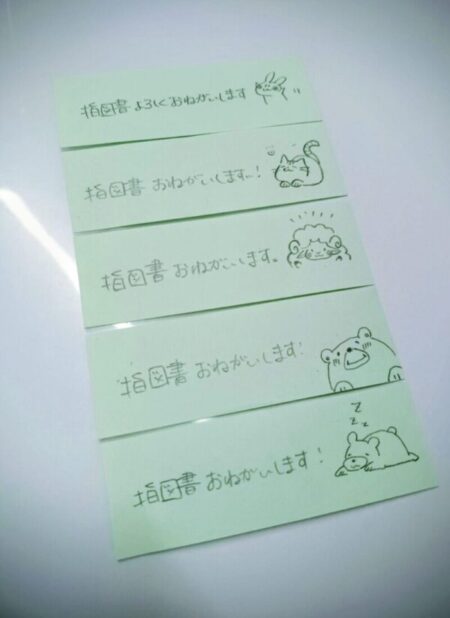 指図書 よろしくおねがいします
指図書 おねがいします!
指図書 おねがいします。
指図書 おねがいします!
z z z
指図書 おねがいします!